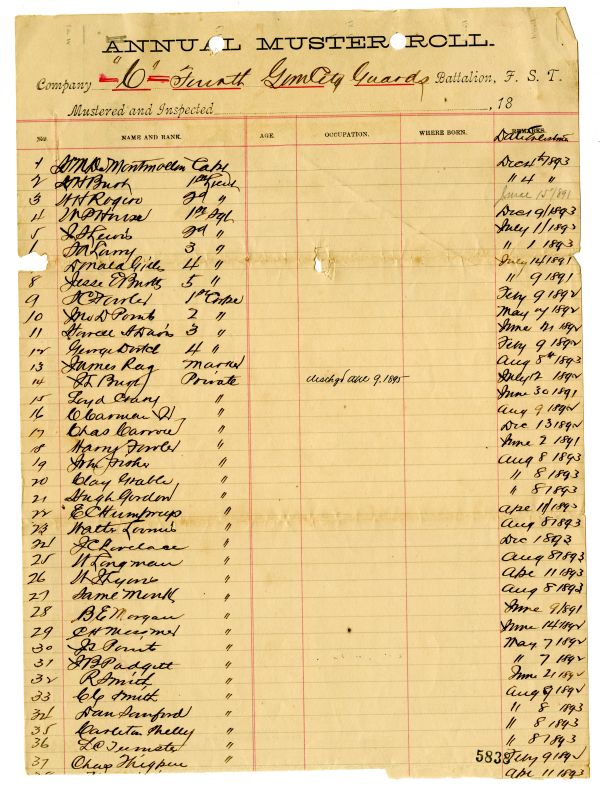 ANNUAL MUSTER ROLL.
Company "C" Fourth Gem City Guards Battalion, F. S. T.
Mustered and Inspected , 18
No. NAME AND RANK. AGE. OCCUPATION. WHERE BORN. REMARKS.
Date Enlisted
1 Wm De Montmollin Capt Dec 4th 1893
2 H Bush 1st Lieut " 4 "
3 W H Rogero 2d " June 15/1891
4 1st Sgt Dec 9/1893
5 J S Lewis 2d " July 1/1893
3 " " 1 1893
Donald 4 " July 14 1891
8 Jesse E Burtt 5 " " 9 1891
9 Fowler 1st Corp Feby 9 1892
10 Jno D Pomt 2 " May 7 1892
11 A Davis 3 " June 21 1892
12 George 4 " Feby 9 1892
13 James Ray Marker Aug 8th 1893
14 Bush Private dischgd June 9. 1895 July 12 1892
15 Loyd " June 30 1891
16 C Carman Jr " Aug 9 1892
17 Chas " Dec 13 1892
18 Harry Fowler " June 2 1891
19 John Fisher " Aug 8 1893
20 Clay Grable " " 8 1893
21 Hugh Gordon " " 8 1893
22 E C Humprey " Apr 11/1893
23 Walter Loomis " Aug 8 1893
24 J C Lovelace " Dec 1893
25 Longman " Aug 8 1893
26 Lyons " Apr 11 1893
27 " Aug 8 1893
28 B E Morgan " June 9/1891
29 C H " June 14 1892
30 " May 7 1892
31 J B Padgett " " 7 1892
32 R Smith " June 21 1892
33 Smith " Aug 9 1892
34 Dan Sanford " " 8 1893
35 Carleton Shelly " " 8 1893
36 " " 8 1893
37 Chas Thigpen " Feby 9 1892
5838
Apr 11 1893